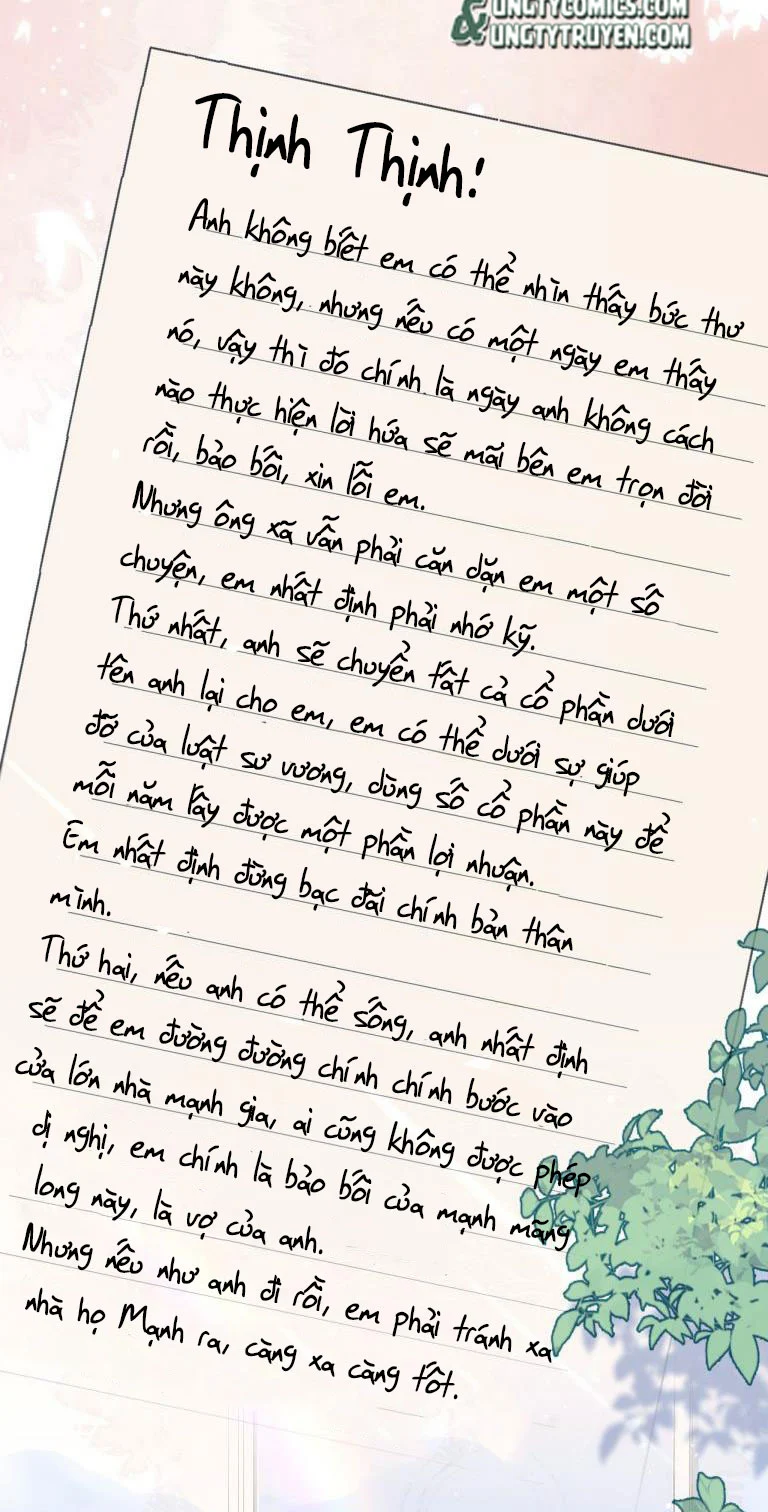 UNGTYCOMICS.COM
& UNGTYTRUYEN.COM
Thịnh Thịnh!
Anh không biết em có thể nhìn thấy bức thư
này không, nhưng nếu có một ngày em thấy
nó, vậy thì đó chính là ngày anh không cách
nào thực hiện lời hứa sẽ mãi bên em trọn đời
rồi, bảo bối, xin lỗi em.
Nhưng ông xã vẫn phải căn dặn em một số
chuyện, em nhất định phải nhớ kỹ.
Thứ nhất, anh sẽ chuyển tất cả cổ phần dưới
tên anh lại cho em, em có thể dưới sự giúp
đỡ của luật sư vương, dùng số cổ phần này để
mỗi năm lấy được một phần lợi nhuận.
Em nhất định đừng bạc đãi chính bản thân
mình.
Thứ hai, nếu anh có thể sống, anh nhất định
sẽ để em đường đường chính chính bước vào
cửa lớn nhà mạnh gia, ai cũng không được phép
dị nghị, em chính là bảo bối của mạnh mãng
long này, là vợ của anh.
Nhưng nếu như anh đi rồi, em phải tránh xa
nhà họ Mạnh ra, càng xa càng tốt.